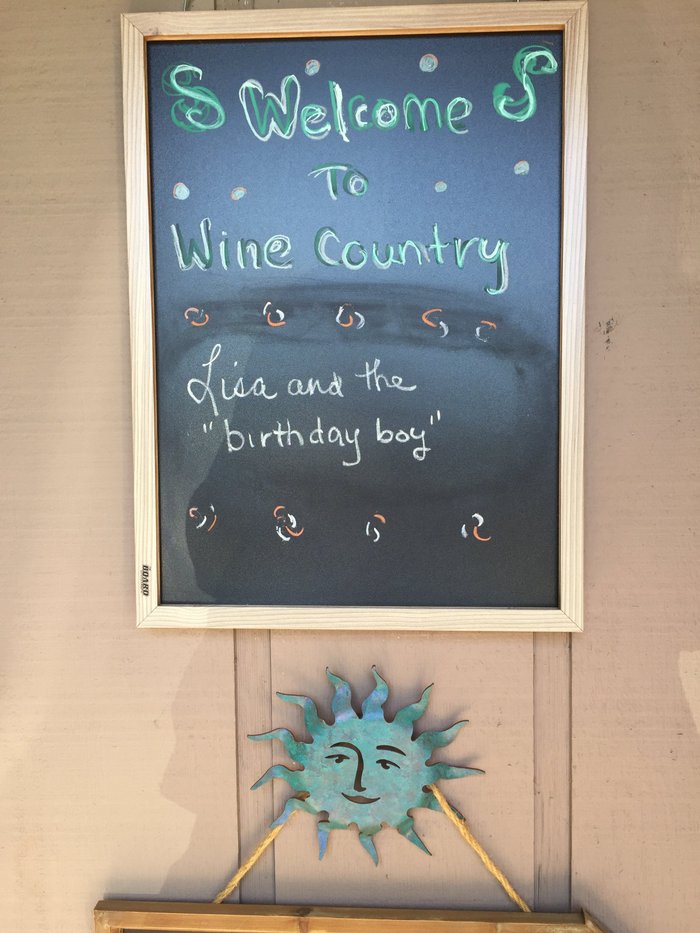 Welcome
To
Wine Country
Lisa and the
"birthday boy"